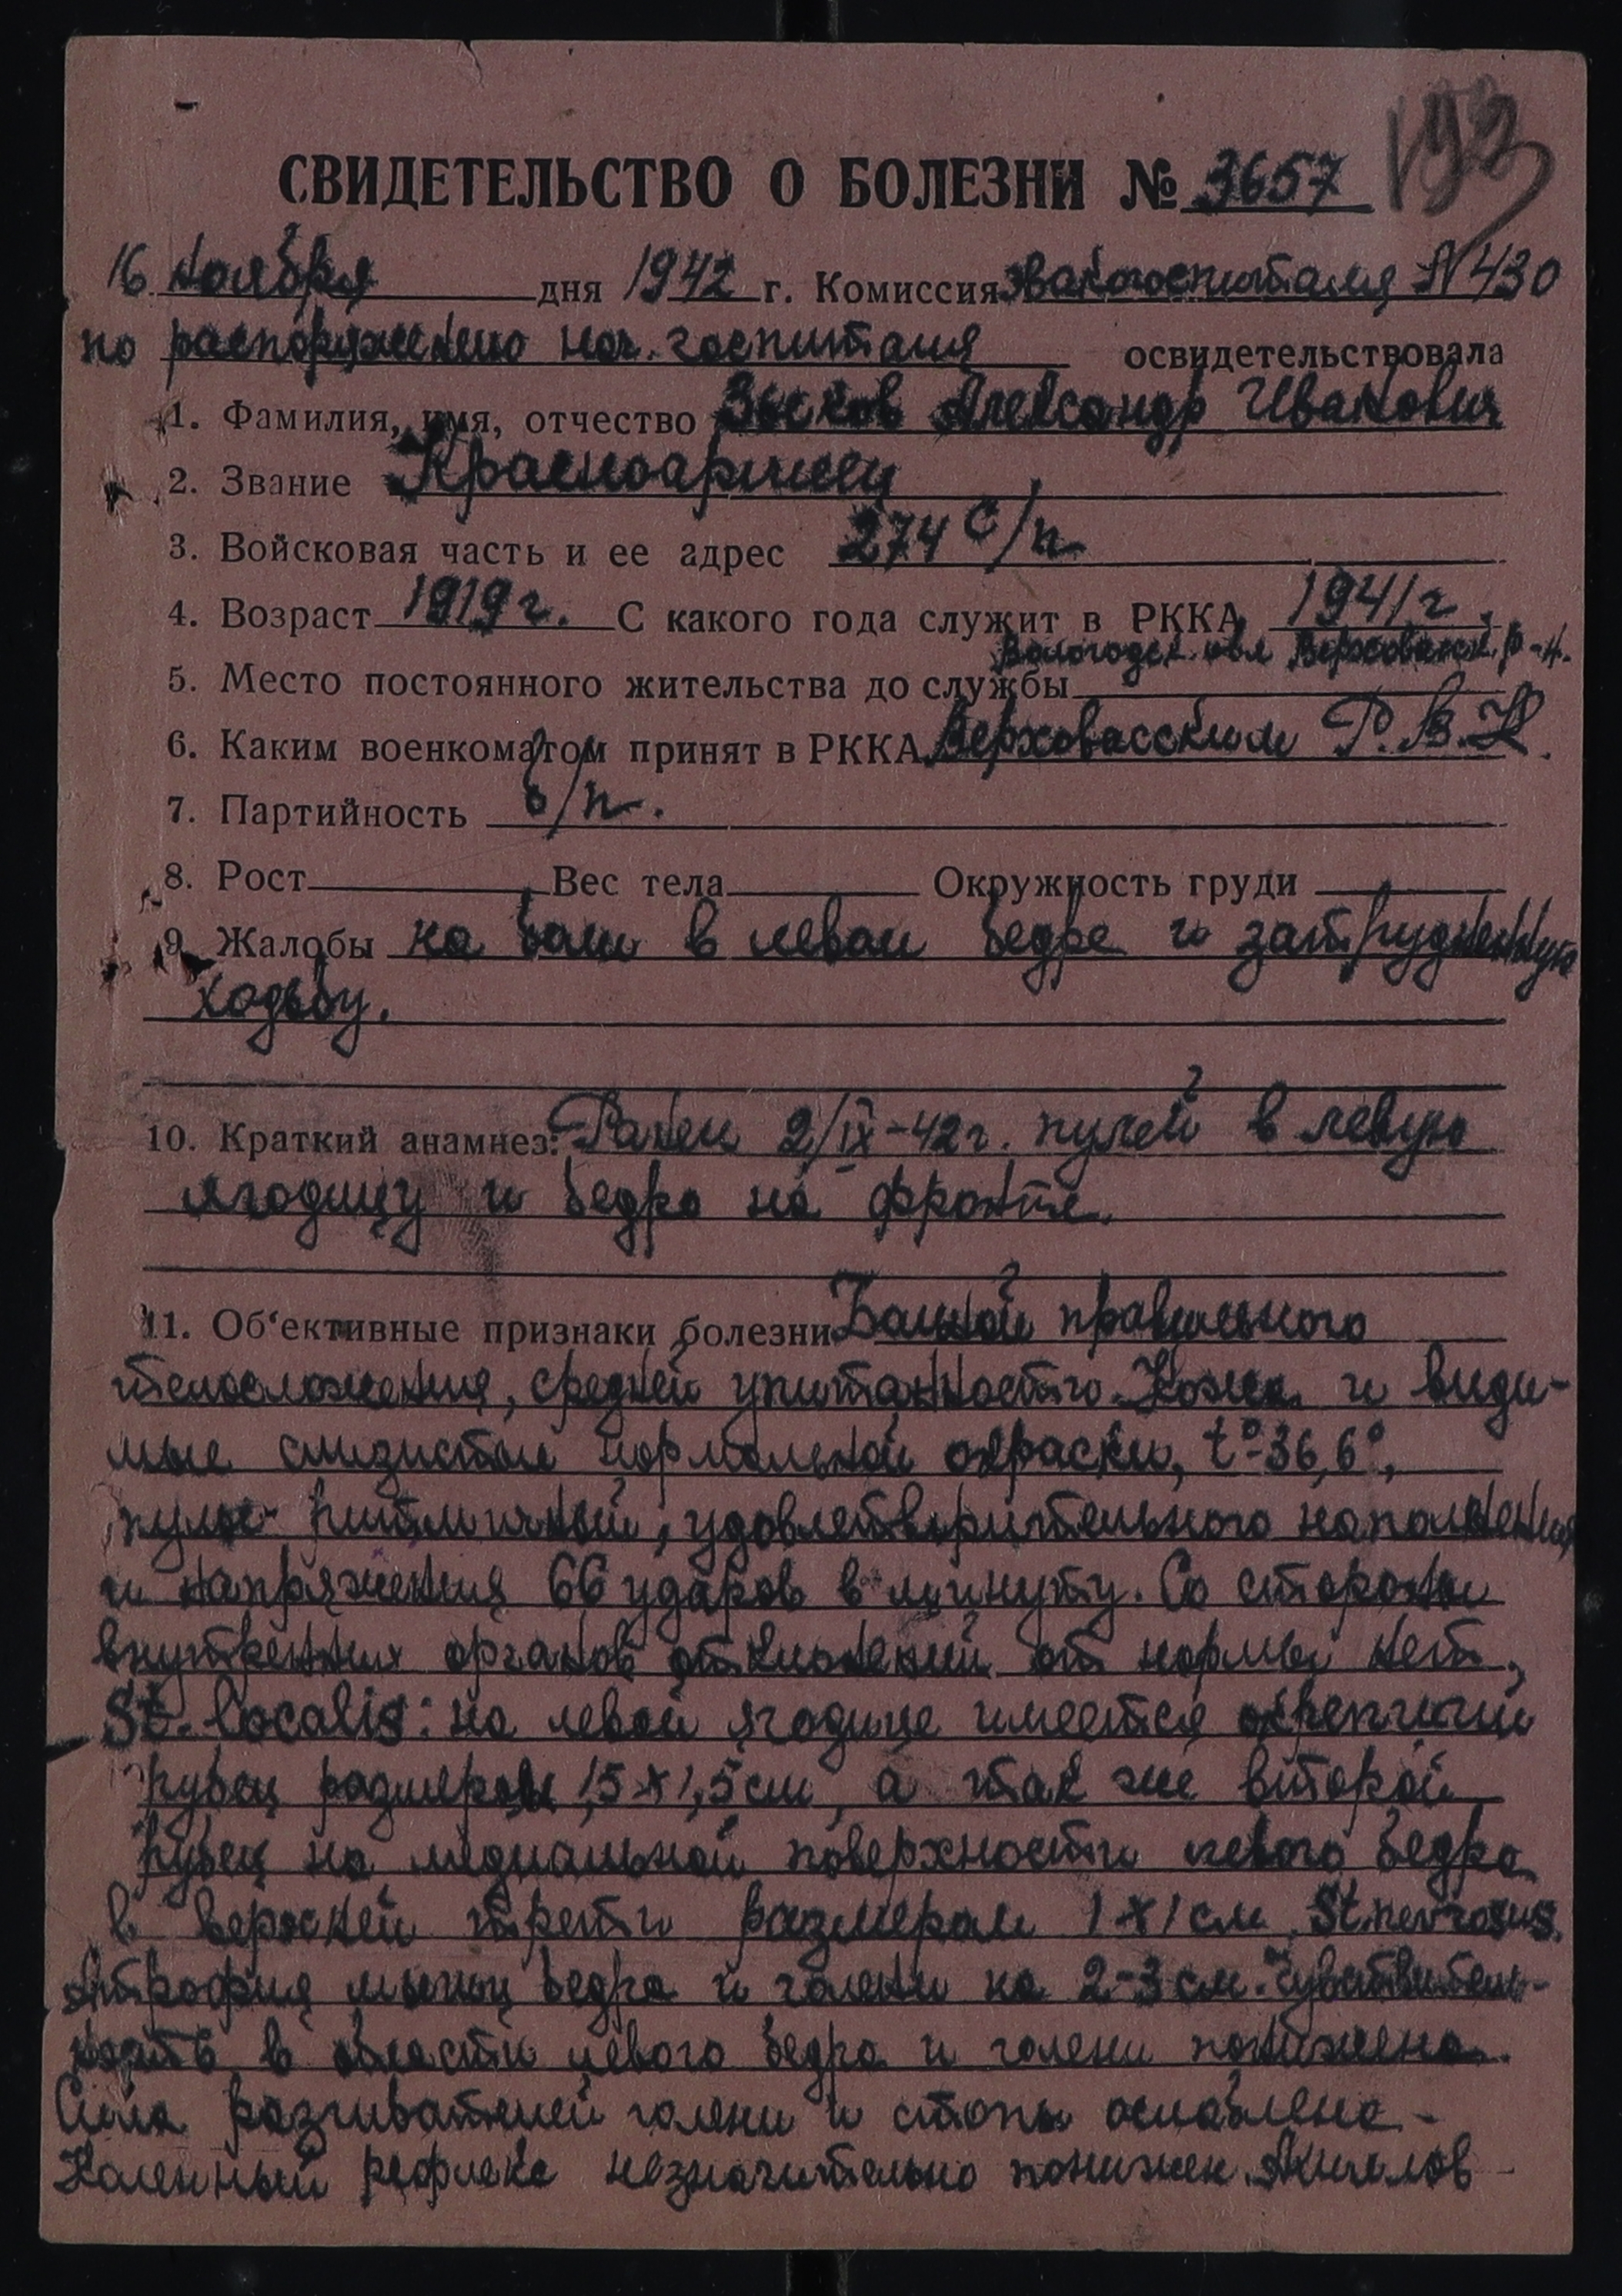 193
СВИДЕТЕЛЬСТВО О БОЛЕЗНИ № 3657
16 ноября дня 1942 г. Комиссия эвакогоспиталя № 430
по распоряжению нач. госпиталя освидетельствовала
1. Фамилия, имя, отчество Александр Иванович
2. Звание Красноармеец
3. Войсковая часть и ее адрес 274 с/п
4. Возраст 1919 г. С какого года служит в РККА 1941 г.
Вологодск. обл Верховажск. р-н.
5. Место постоянного жительства до службы
6. Каким военкоматом принят в РККА Верховасским Р.В.К.
7. Партийность б/п.
8. Рост Вес тела Окружность груди
9. Жалобы на боли в левом бедре и затрудненную
ходьбу.
10. Краткий анамнез: Ранен 2/IX-42 г. пулей в левую
ягодицу и бедро на фронте.
11. Об‘ективные признаки болезни Больной правильного
телосложения, средней упитанности. Кожа и види-
мые слизистые нормальной окраски, t°-36,6°,
пульс ритмичный, удовлетворительного наполнения
и напряжения 66 ударов в минуту. Со стороны
внутренних органов отклонений от нормы нет,
St. localis: на левой ягодице имеется окрепший
рубец размером 1,5 х 1,5 см, а так же второй
рубец на медиальной поверхности левого бедра
в верхней трети размером 1 х 1 см. St. nervosus.
Атрофия мышц бедра и голени на 2-3 см. Чувствитель-
ность в области левого бедра и голени понижена.
Сила разгибателей голени и стопы ослаблена -
Коленный рефлекс незначительно понижен. Ахиллов